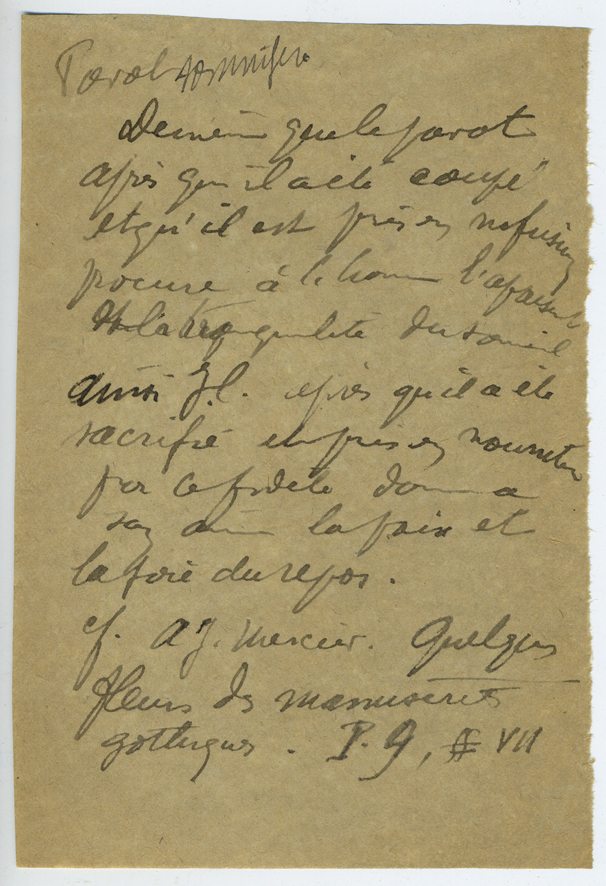 Pavot somnifère
De même que le pavot
après qu'il a été coupé
et qu'il est pris en infusion
procure à l'homme l'apaisement
et la tranquilité du someil
ainsi J.C. après qu'il a été
sacrifié et pris en nourriture
par le fidèle donne a
son âme la paix et
la joie du repos.
cf. A J. Mercier. Quelques
fleurs des manuscrits
gothiques. P. 9, VII